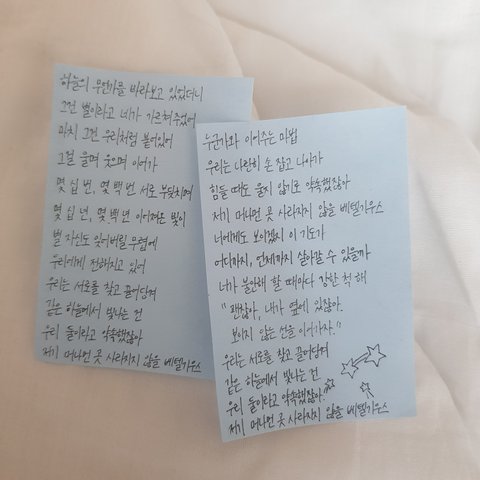 하늘의 무언가를 바라보고 있었더니
그건 별이라고 네가 가르쳐주었어
마치 그건 우리처럼 붙어있어
그걸 울며 웃으며 이어가
몇 십 번, 몇 백 번 서로 부딪치며
몇 십 년, 몇 백 년 이어져온 빛이
별 자신도 잊어버릴 무렵에
우리에게 전해지고 있어
우리는 서로를 찾고 끌어당겨
같은 하늘에서 빛나는 건
우리 둘이라고 약속했잖아
저기 머나먼 곳 사라지지 않을 베텔기우스
누군가와 이어주는 마법
우리는 나란히 손 잡고 나아가
힘들 때도 울지 않기로 약속했잖아
저기 머나먼 곳 사라지지 않을 베텔기우스
너에게도 보이겠지 이 기도가
어디까지, 언제까지 살아갈 수 있을까
너가 불안해 할 때마다 강한 척 해
"괜찮아, 내가 옆에 있잖아.
보이지 않는 선을 이어가자."
우리는 서로를 찾고 끌어당겨
같은 하늘에서 빛나는 건
우리 둘이라고 약속했잖아.
저기 머나먼 곳 사라지지 않을 베텔기우스